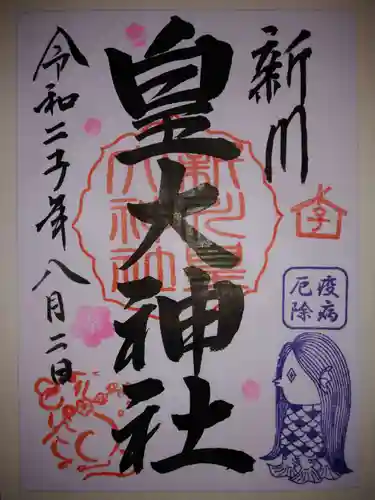 新川
皇大神社
令和二子年八月二日
疫病
厄除
新川皇
大神社